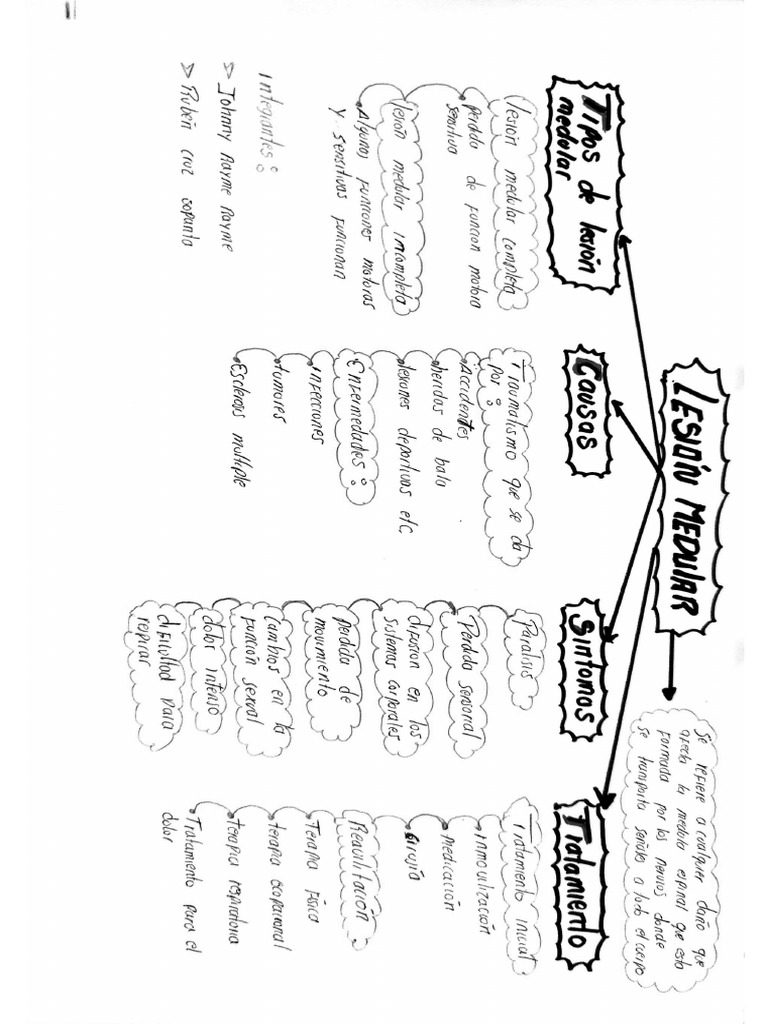 LESIÓN MEDULAR
Se refiere a cualquier daño que
afecta la medula espinal que esta
formada por los nervios donde
se transporta señales a todo el cuerpo
Tipos de lesión
medular
lesión medular completa
perdida de funcion motora
sensitiva
lesión medular incompleta
Algunas funciones motoras
y sensitivas funcionan
Integrantes:
Johnny Rayme Rayme
Rubén cruz sopanta
Causas
Traumatismo que se da
por:
Accidentes
heridas de bala
lesiones deportivas etc.
Enfermedades:
infecciones
tumores
Esclerosis multiple
Síntomas
Paralisis
Perdida sensorial
difusion en los
sistemas corporales
perdida de
movimiento
cambios en la
función sexual
dolor intenso
dificultad para
respirar
Tratamiento
Tratamiento inicial
inmovilización
medicación
cirujía
Reavilitación
Terapia física
terapia ocopacional
terapia respiratoria
Tratamiento para el
dolor